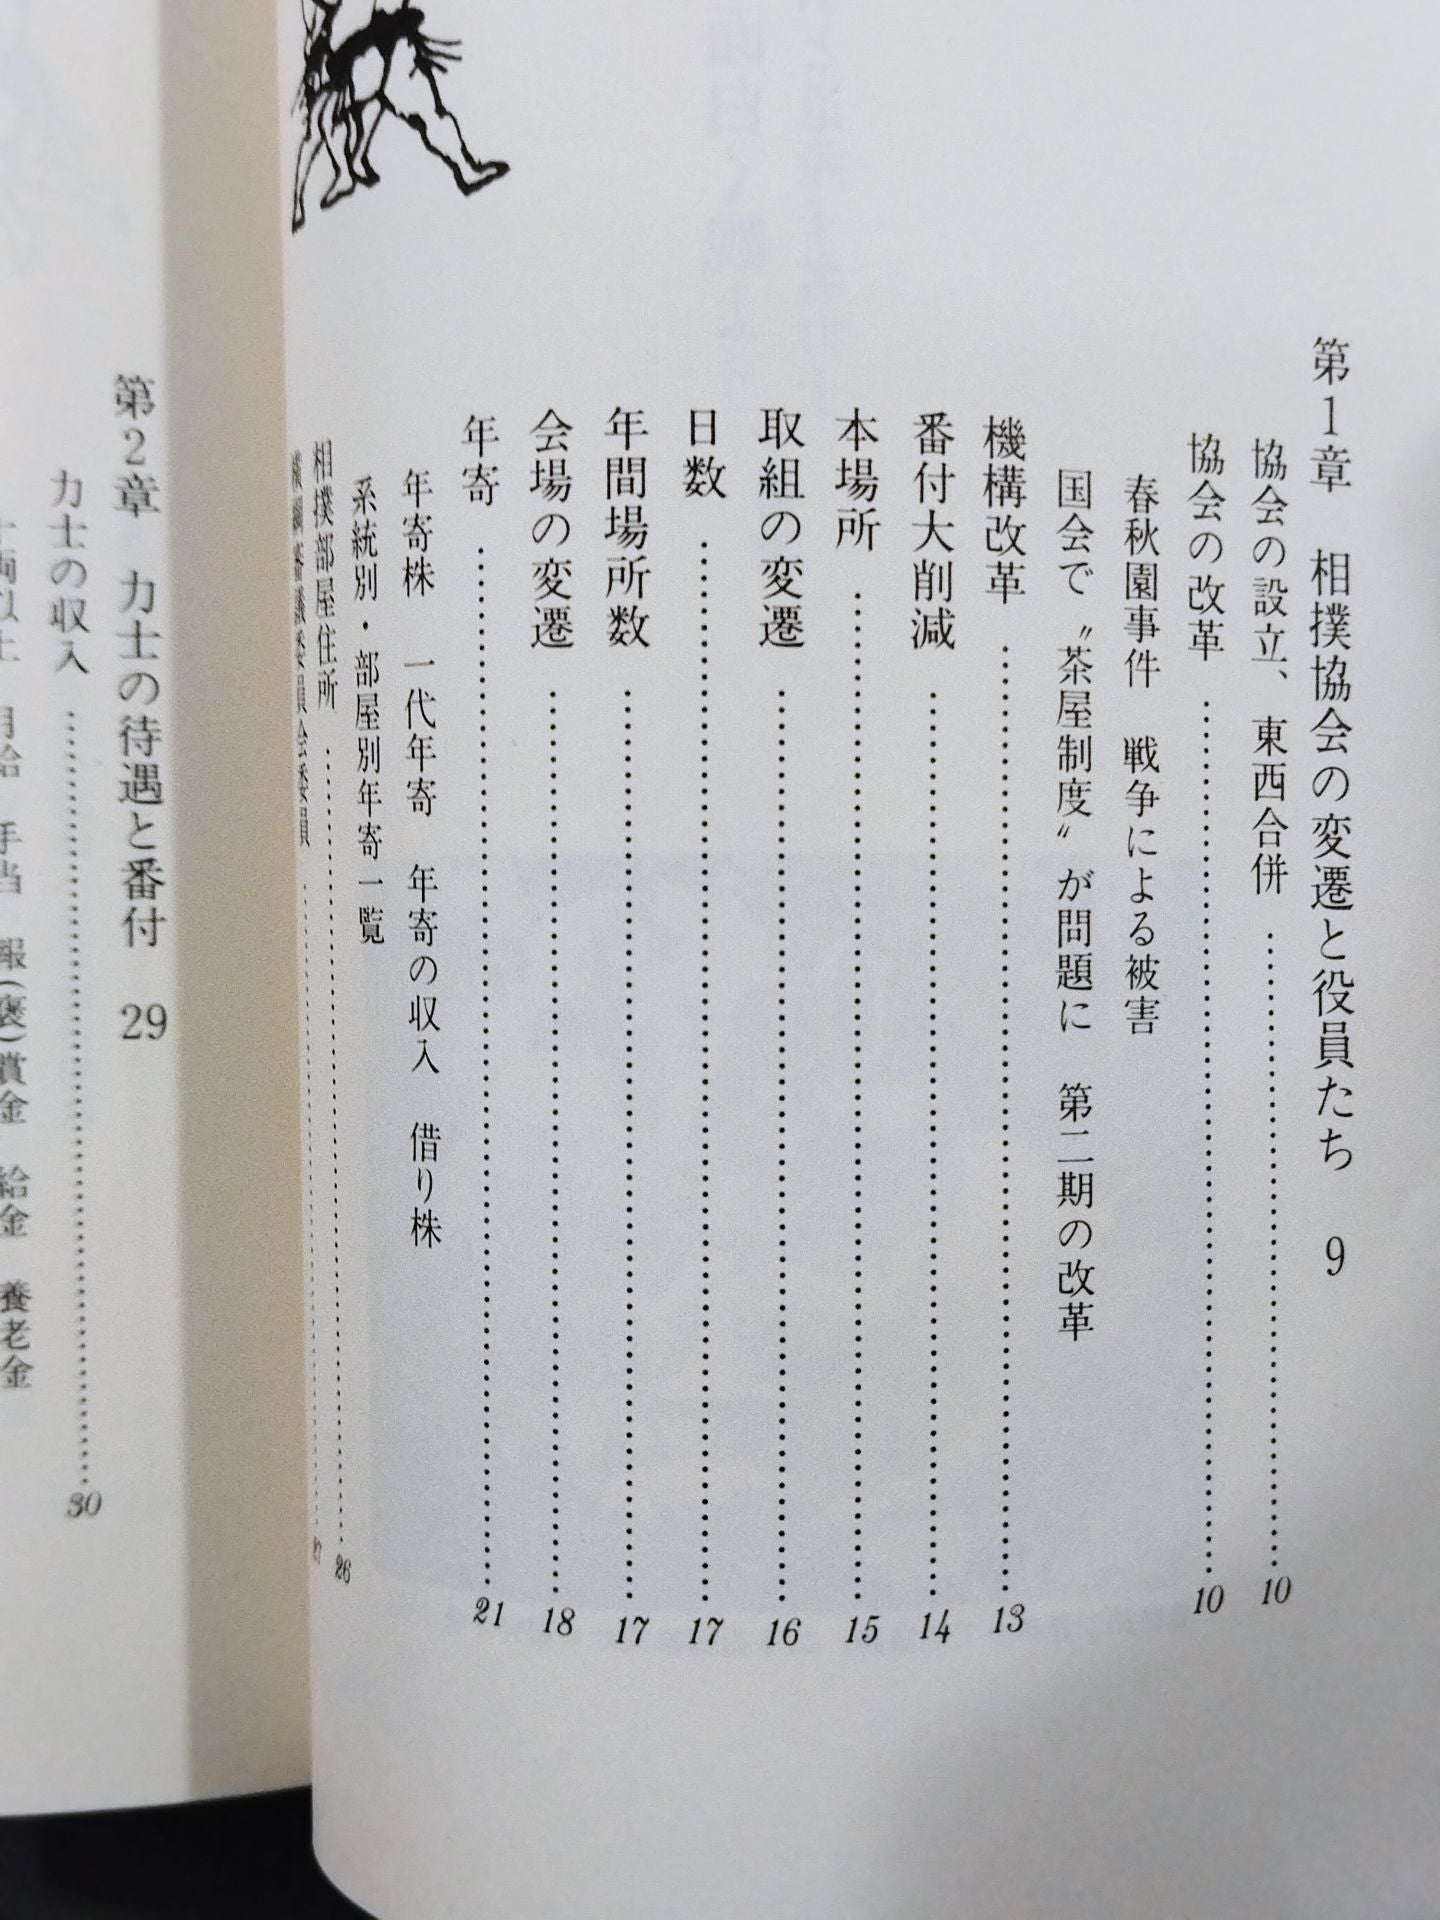 第1章 相撲協会の変遷と役員たち 9
協会の設立、東西合併……10
協会の改革……10
春秋園事件 戦争による被害
国会で〝茶屋制度〟が問題に 第二期の改革
機構改革……13
番付大削減……14
本場所……15
取組の変遷……16
日数……17
年間場所数……17
会場の変遷……18
年寄……21
年寄株 一代年寄 年寄の収入 借り株
系統別・部屋別年寄一覧
相撲部屋住所……26
横綱審議委員会委員……27
第2章 力士の待遇と番付 29
力士の収入……30
十両以上 月給 手当 報(褒)賞金 給金 養老金